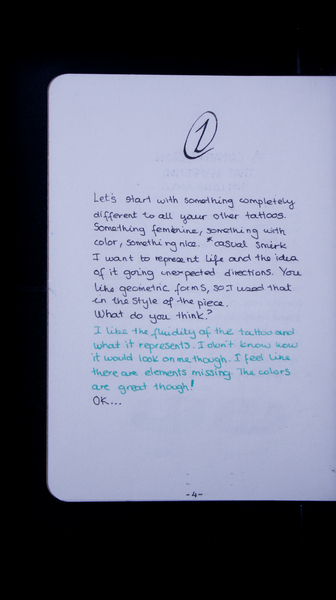 1
Let's start with something completely
different to all your other tattoos.
Something feminine, something with
color, something nice. *casual smirk
I want to represent life and the idea
of it going unexpected directions. You
like geometric forms, so I used that
in the style of the piece.
What do you think?
I like the fluidity of the tattoo and
what it represents. I don't know how
it would look on me though. I feel like
there are elements missing. The colors
are great though!
OK...
-4-